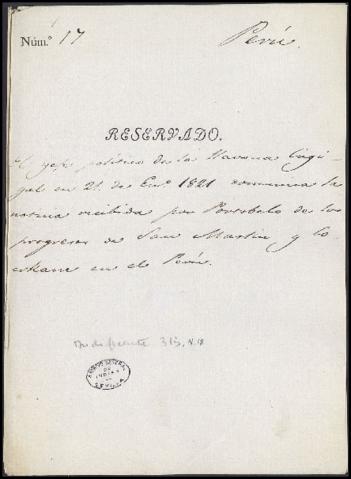 Núm.º 17
Perú.
RESERVADO.
El gefe político de la Havana Cagi-
gal en 21 de En.º 1821 comunica la
noticia recibida por Portobelo de los
progresos de San Martin, y lo
en el Perú.
Indiferente 313, N.18
ARCHIVO GENERAL
DE
INDIAS
SEVILLA